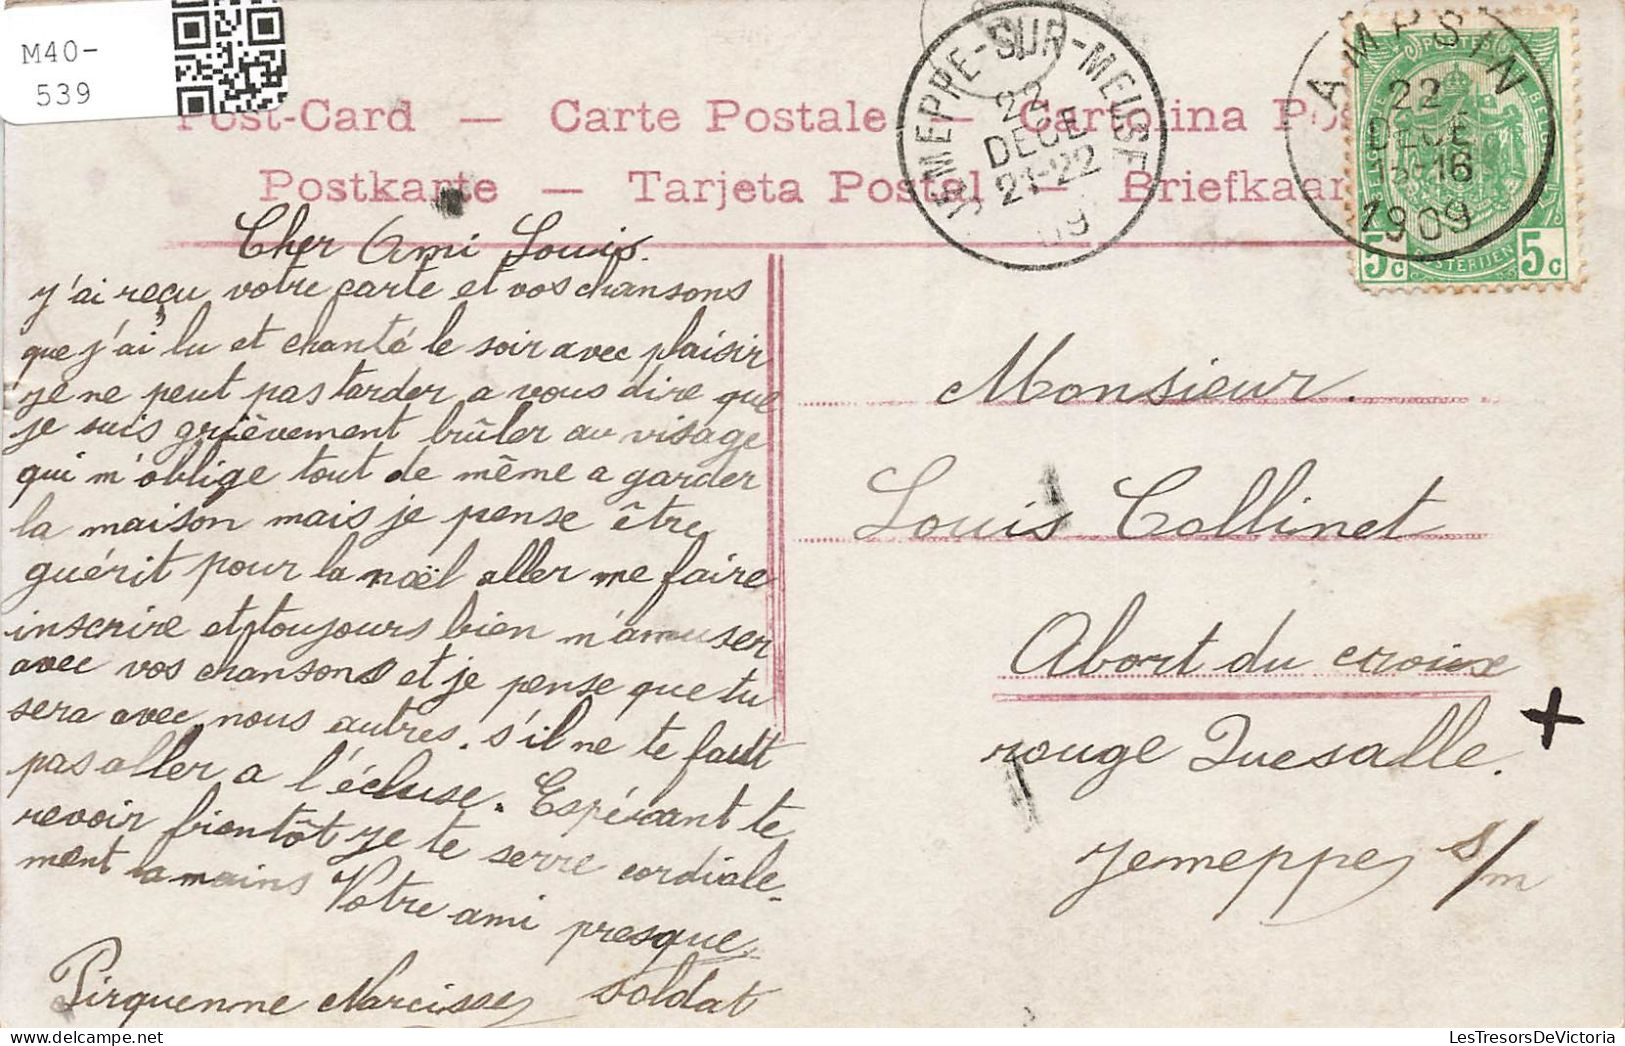 M40-
539
Post-Card — Carte Postale — Cartolina Pos
Postkarte — Tarjeta Postal — Briefkaar
JEMEPPE-SUR-MEUSE
22
DECE
21-22
09
AMPSIN
22
DECE
-16
1909
POSTES
5c
5c
Cher Ami Louis.
J'ai reçu votre carte et vos chansons
que j'ai lu et chanté le soir avec plaisir
je ne peut pas tarder a vous dire que
je suis grièvement brûler au visage
qui m'oblige tout de même a garder
la maison mais je pense être
guérit pour la noël aller me faire
inscrire et toujours bien m'amuser
avec vos chansons et je pense que tu
sera avec nous autres. s'il ne te fault
pas aller a l'écluse. Espérant te
revoir bientôt je te serre cordiale-
ment la mains Votre ami presque
Pirquenne Narcisse soldat
Monsieur.
Louis Collinet
Abort du croix
rouge Quesalle.
+
Jemeppe s/m
LesTresorsDeVictoria